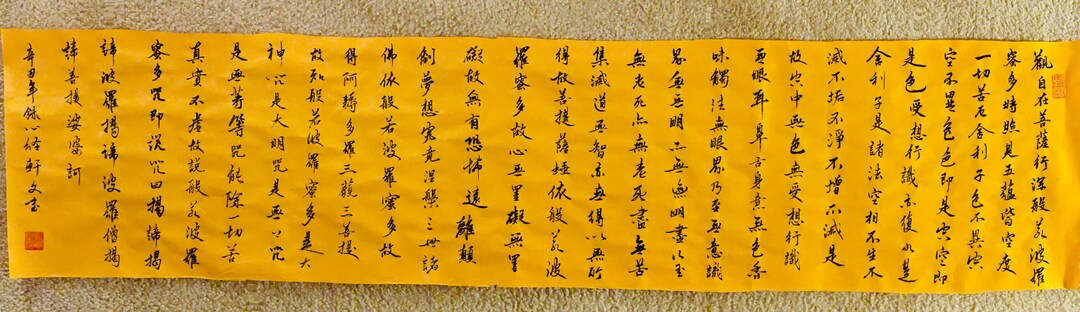 觀自在菩薩行深般若波羅
密多時照見五蘊皆空度
一切苦厄舍利子色不異空
空不異色色即是空空即
是色受想行識亦復如是
舍利子是諸法空相不生不
滅不垢不淨不增不減是
故空中無色無受想行識
無眼耳鼻舌身意無色香
味觸法無眼界乃至無意識
界無無明亦無無明盡乃至
無老死亦無老死盡無苦
集滅道無智亦無得以無所
得故菩提薩埵依般若波
羅密多故心無罣礙無罣
礙故無有恐怖遠離顛
倒夢想究竟涅槃三世諸
佛依般若波羅密多故
得阿耨多羅三藐三菩提
故知般若波羅密多是大
神咒是大明咒是無上咒
是無等等咒能除一切苦
真實不虛故說般若波羅
密多咒即說咒曰揭諦揭
諦波羅揭諦波羅僧揭
諦菩提娑婆訶
辛丑年錄心經軒文書